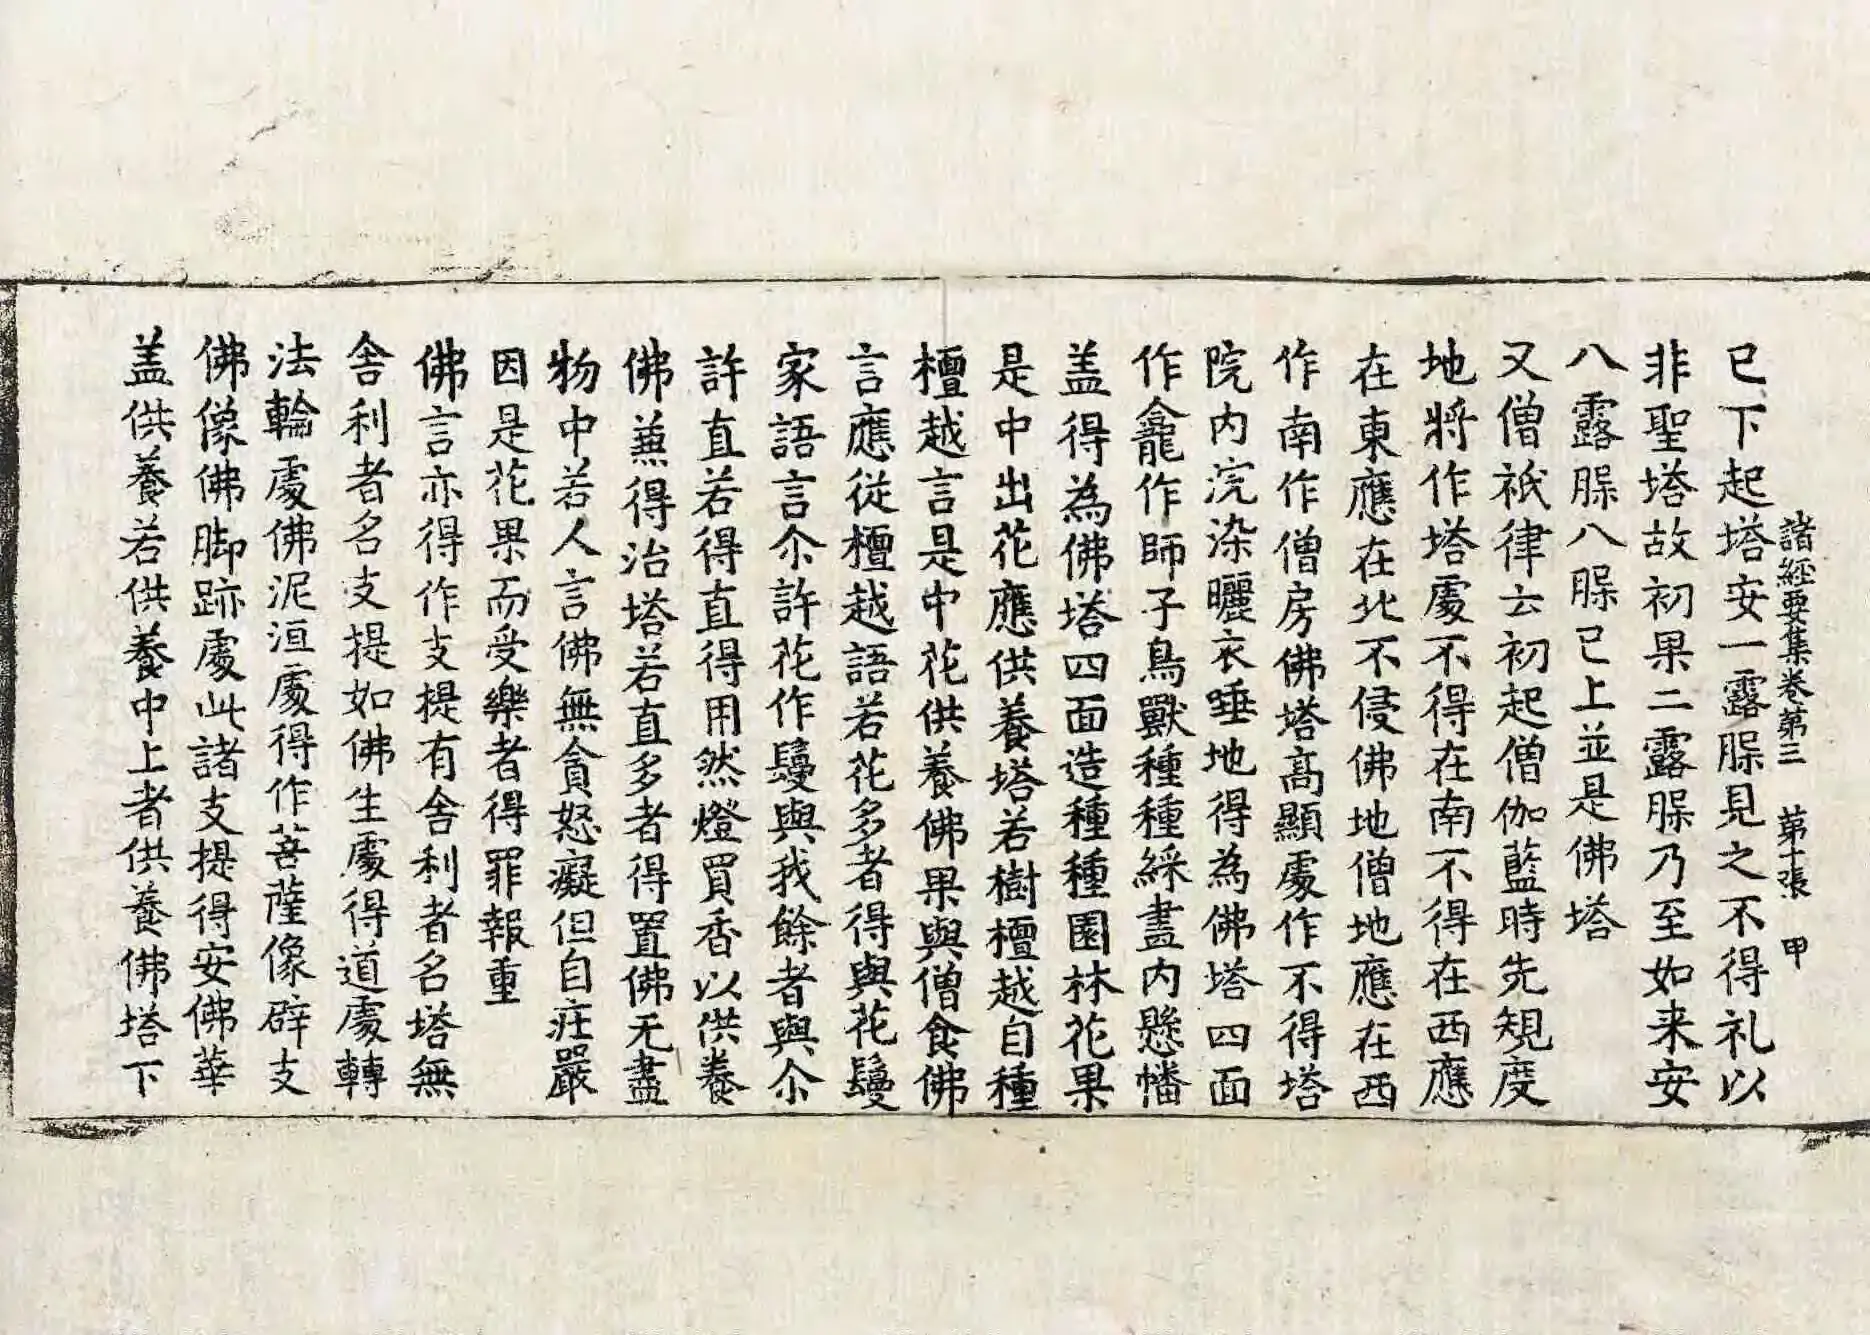 諸經要集卷第三　第十張　甲
已下起塔安一露腂見之不得礼以
非聖塔故初果二露腂乃至如来安
八露腂八腂已上並是佛塔
又僧祇律云初起僧伽藍時先規度
地將作塔處不得在南不得在西應
在東應在北不侵佛地僧地應在西
作南作僧房佛塔高顯處作不得塔
院內浣染曬衣唾地得為佛塔四面
作龕作師子鳥獸種種綵畫內懸幡
盖得為佛塔四面造種種園林花果
是中出花應供養塔若樹檀越自種
檀越言是中花供養佛果與僧食佛
言應從檀越語若花多者得與花鬘
家語言尒許花作鬘與我餘者與尒
許直若得直得用然燈買香以供養
佛兼得治塔若直多者得置佛无盡
物中若人言佛無貪怒癡但自莊嚴
因是花果而受樂者得罪報重
佛言亦得作支提有舍利者名塔無
舍利者名支提如佛生處得道處轉
法輪處佛泥洹處得作菩薩像辟支
佛像佛脚跡處此諸支提得安佛華
盖供養若供養中上者供養佛塔下